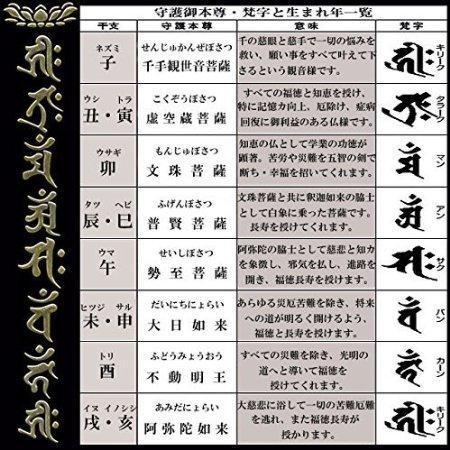 守護御本尊・梵字と生まれ年一覧
干支 守護本尊 意味 梵字
ネズミ
子
せんじゅかんぜぼさつ
千手観世音菩薩
千の慈眼と慈手で一切の悩みを
救い、願い事をすべて叶えて下
さるという観音様です。
キリーク
ウシ トラ
丑・寅
こくぞうぼさつ
虚空蔵菩薩
すべての福徳と知恵を授け、
特に記憶力向上、厄除け、症病
回復に御利益のある仏様です。
タラーク
ウサギ
卯
もんじゅぼさつ
文殊菩薩
知恵の仏として学業の功徳が
顕著。苦労や災難を五智の剣で
断ち・幸福を招いてくれます。
マン
タツ ヘビ
辰・巳
ふげんぼさつ
普賢菩薩
文殊菩薩と共に釈迦如来の脇士
として白象に乗った菩薩です。
長寿を授けてくれます。
アン
ウマ
午
せいしぼさつ
勢至菩薩
阿弥陀の脇士として慈悲と知力
を象徴し、邪気を払し、進路を
開き、福徳長寿を授けます。
サク
ヒツジ サル
未・申
だいにちにょらい
大日如来
あらゆる災厄苦難を除き、将来
への道が明るく開けるよう、
福徳と長寿を授けます。
バン
トリ
酉
ふどうみょうおう
不動明王
すべての災難を除き、光明の
道へと導いて福徳を
授けてくれます。
カーン
イヌ イノシシ
戌・亥
あみだにょらい
阿弥陀如来
大慈悲に浴して一切の苦難厄難
を逃れ、また福徳長寿が
授かります。
キリーク